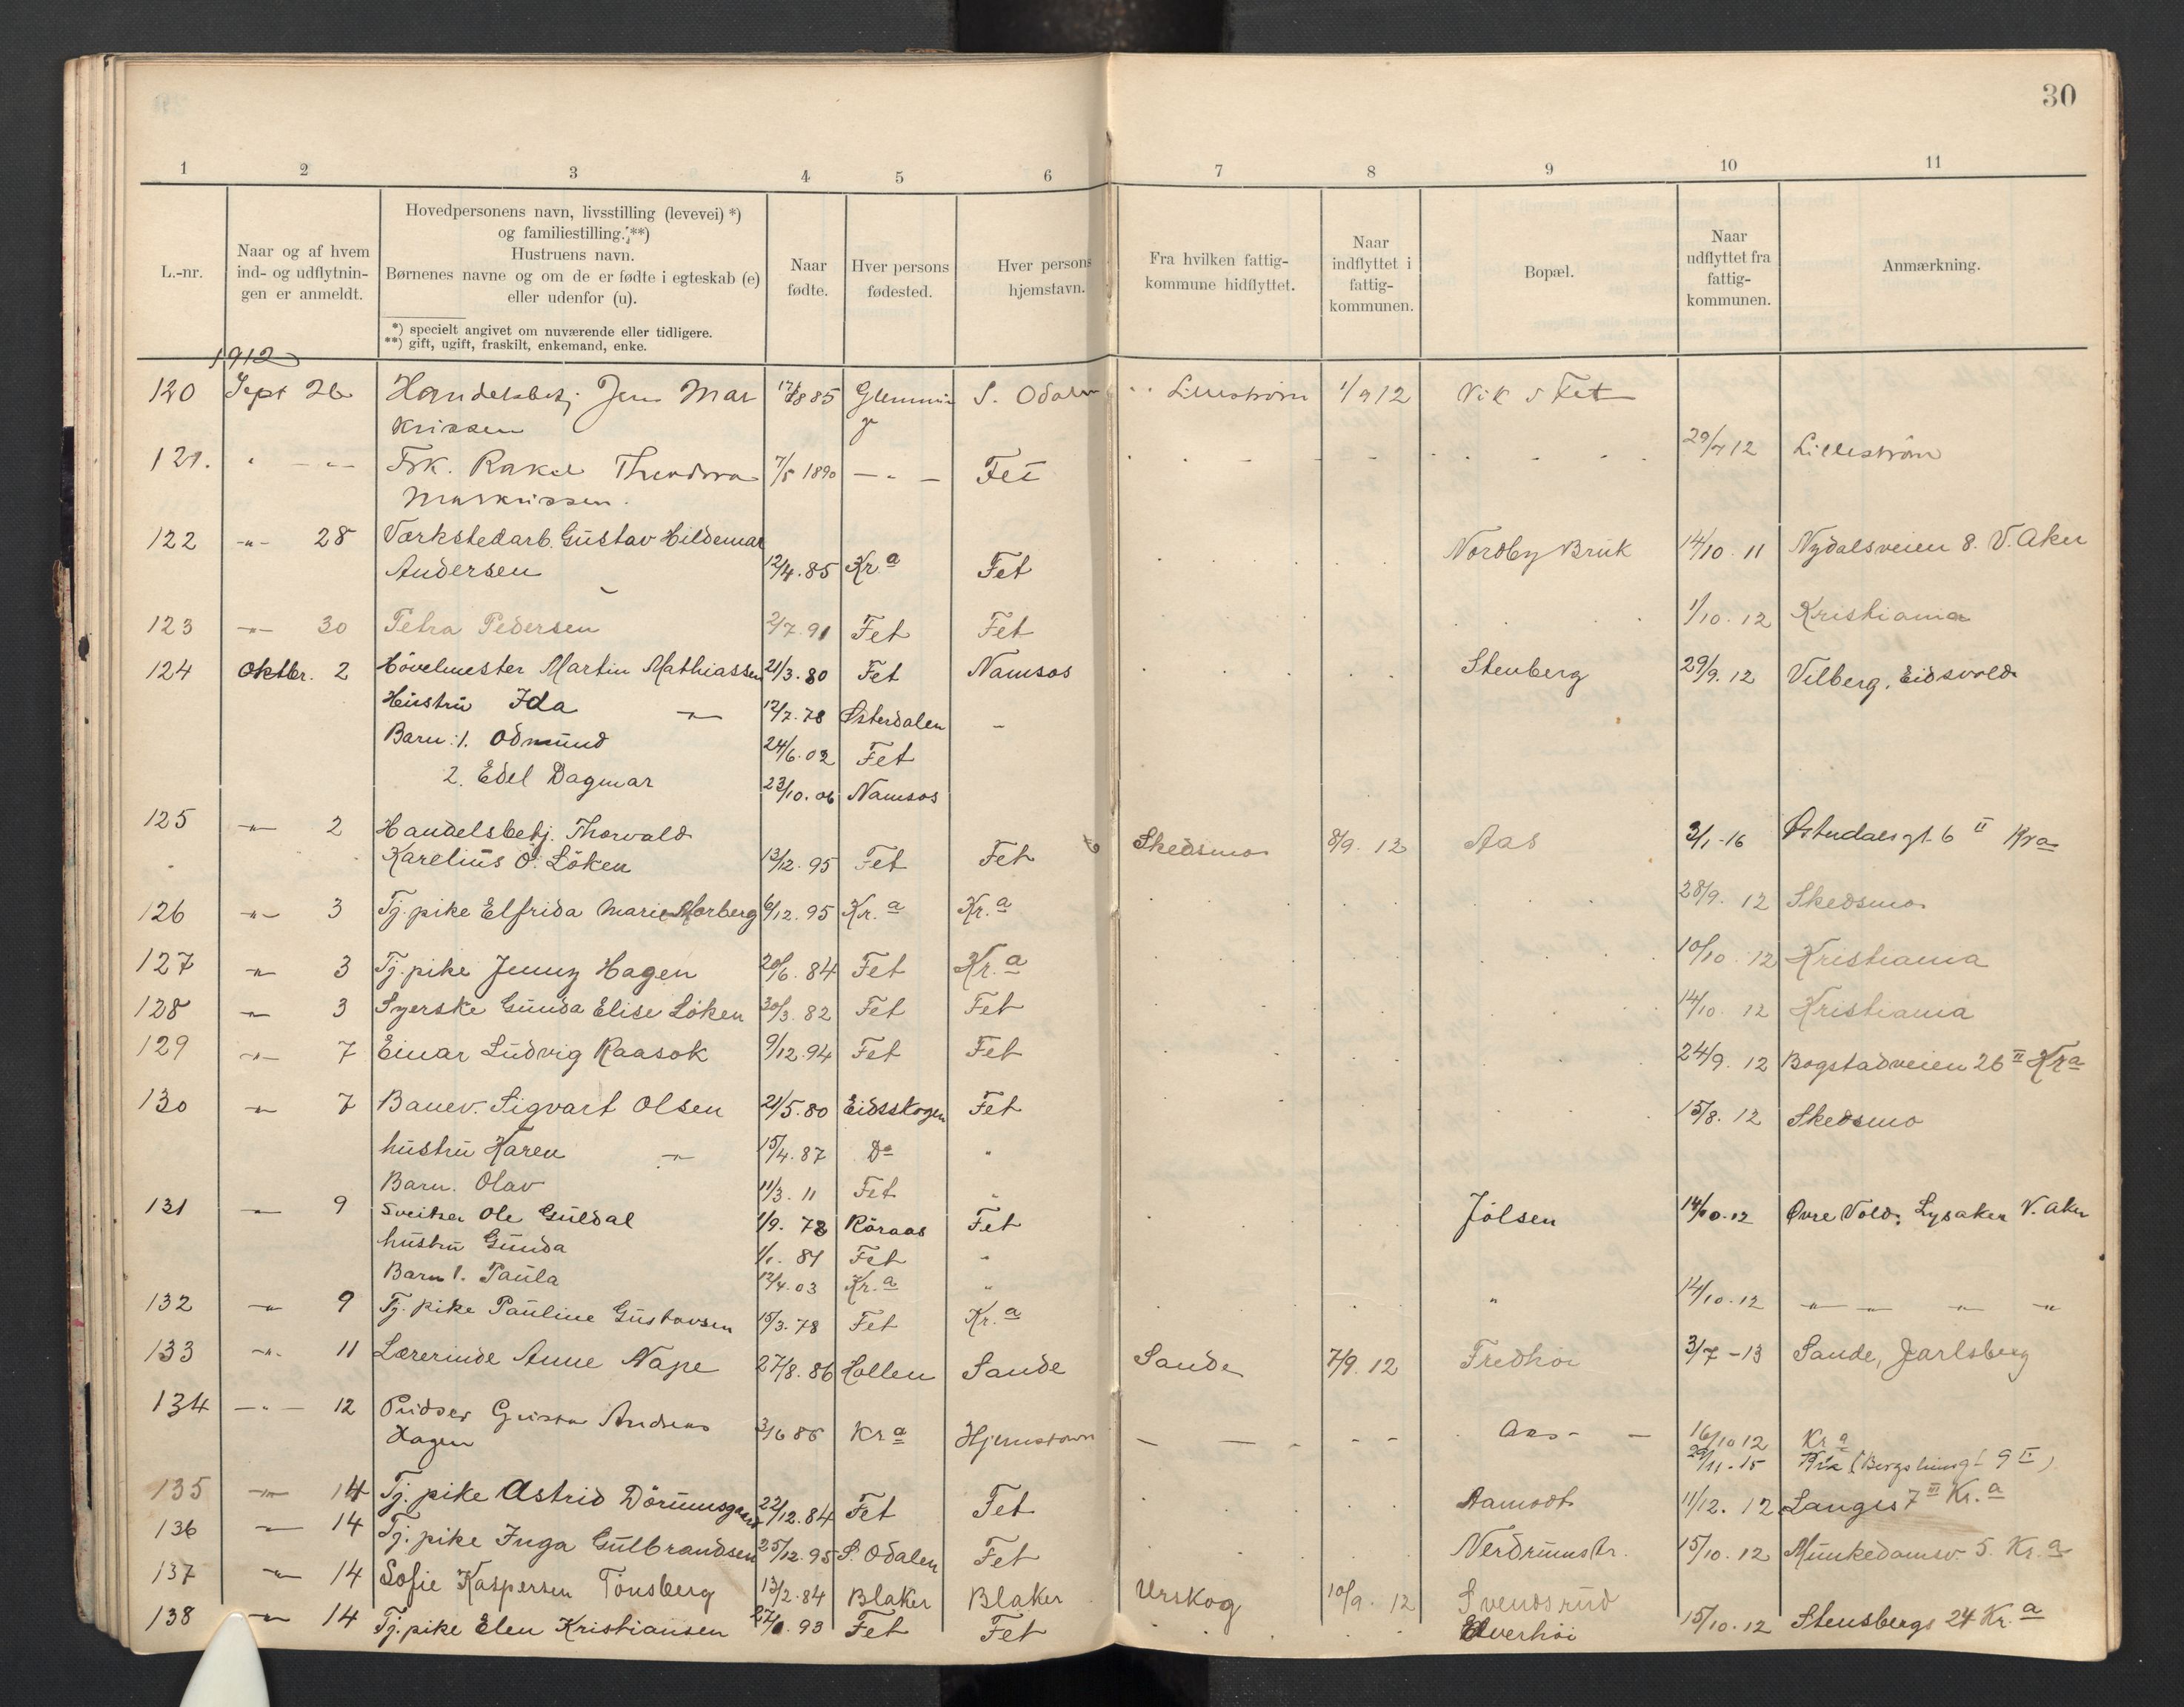 30
1 2 3 4 5 6 7 8 9 10 11
L.-nr.
Naar og af hvem
ind- og udflytnin-
gen er anmeldt.
Hovedpersonens navn, livsstilling (levevei) *)
og familiestilling. **)
Hustruens navn.
Børnenes navne og om de er fødte i egteskab (e)
eller udenfor (u).
*) specielt angivet om nuværende eller tidligere.
**) gift, ugift, fraskilt, enkemand, enke.
Naar
fødte.
Hver persons
fødested.
Hver persons
hjemstavn.
Fra hvilken fattig-
kommune hidflyttet.
Naar
indflyttet i
fattig-
kommunen.
Bopæl.
Naar
udflyttet fra
fattig-
kommunen.
Anmærkning.
1912
120 Sept 26 Handelsbetj. Jens Mar 85 Glemmin S. Odalen Lillestrøm 1/9 12 Vik i Fet
krissen ge
121. " - " - Frk. Rakel Theodora 7/5 1890 - " - Fet 29/7 12 Lillestrøm
Markrissen.
122 -"- 28 Værkstedarb. Gustav Hildemar Nordby Bruk 14/10. 11 Nydalsveien 8. V. Aker
Andersen 12/4. 85 Kr.a Fet
123 -"- 30 Petra Pedersen 2/7. 91 Fet Fet 1/10. 12 Kristiania
124 Oktbr. 2 Høvelmester Martin Mathiassen 21/3. 80 Fet Namsos Stenberg 29/9. 12 Vilberg, Eidsvold
Hustru Ida -"- 12/7. 78 Østerdalen -
Barn: 1. Odmund 24/6. 02 Fet
2. Edel Dagmar 23/10. 06 Namsos
125 -"- 2 Handelsbetj. Thorvald
Karelius O. Löken 13/12. 95 Fet Fet Skedsmo 8/9. 12 Aas 3/1-16 Østerdalsgt. 6 II Kra
126 -"- 3 Tj. pike Elfrida Marie Morberg 6/12. 95 Kr.a Kr.a 28/9. 12 Skedsmo
127 -"- 3 Tj. pike Jenny Hagen 20/6. 84 Fet Kr.a 10/10. 12 Kristiania
128 -"- 3 Syerske Gunda Elise Löken 30/3. 82 Fet Fet 14/10. 12 Kristiania
129 -"- 7 Einar Ludvig Raasok 9/12. 94 Fet Fet 24/9. 12 Bogstadveien 26 II Kra
130 -"- 7 Banev. Sigvart Olsen 21/5. 80 Eidsskogen Fet 15/8. 12 Skedsmo
hustru Karen -"- 15/4. 87 Do "
Barn. Olav 11/3. 11 Fet "
131 -"- 9 Sveitser Ole Guldal 1/9. 78 Röraas Fet Jölsen 14/10. 12 Øvre Vold, Lysaker V. Aker
hustru Gunda 1/1. 81 Fet "
Barn 1. Paula 12/4. 03 Kr.a "
132 -"- 9 Tj. pike Pauline Gustavsen 15/3. 78 Fet Kr.a " 14/10. 12 -"- -"- -"- -"-
133 -"- 11 Lærerinde Anne Nape 27/8. 86 Hollen Sande Sande 7/9. 12 Fredhöi 3/7-13 Sande, Jarlsberg
134 -"- 12 Pudser Andreas
Hagen 3/6 86 Kra Hjemstavn - - - - - Aas - - 16/10 12 Kra
29/11. 15 (Bergsliensgt 9 II)
135 -"- 14 Tj. pike Astrid Dörumsgaard 22/12. 84 Fet Fet Aamodt 11/12. 12 Langes 7 III Kr.a
136 -"- 14 Tj. pike Inga Gulbrandsen 25/12. 95 S. Odalen Fet Nerdrumstr. 15/10. 12 Munkedamsv. 5. Kr.a
137 -"- 14 Sofie Kaspersen Tönsberg 13/2. 84 Blaker Blaker Urskog 10/9. 12 Svendsrud
138 -"- 14 Tj. pike Elen Kristiansen 93 Fet Fet Elverhöi 15/10. 12 Stensbergs 24 Kr.a